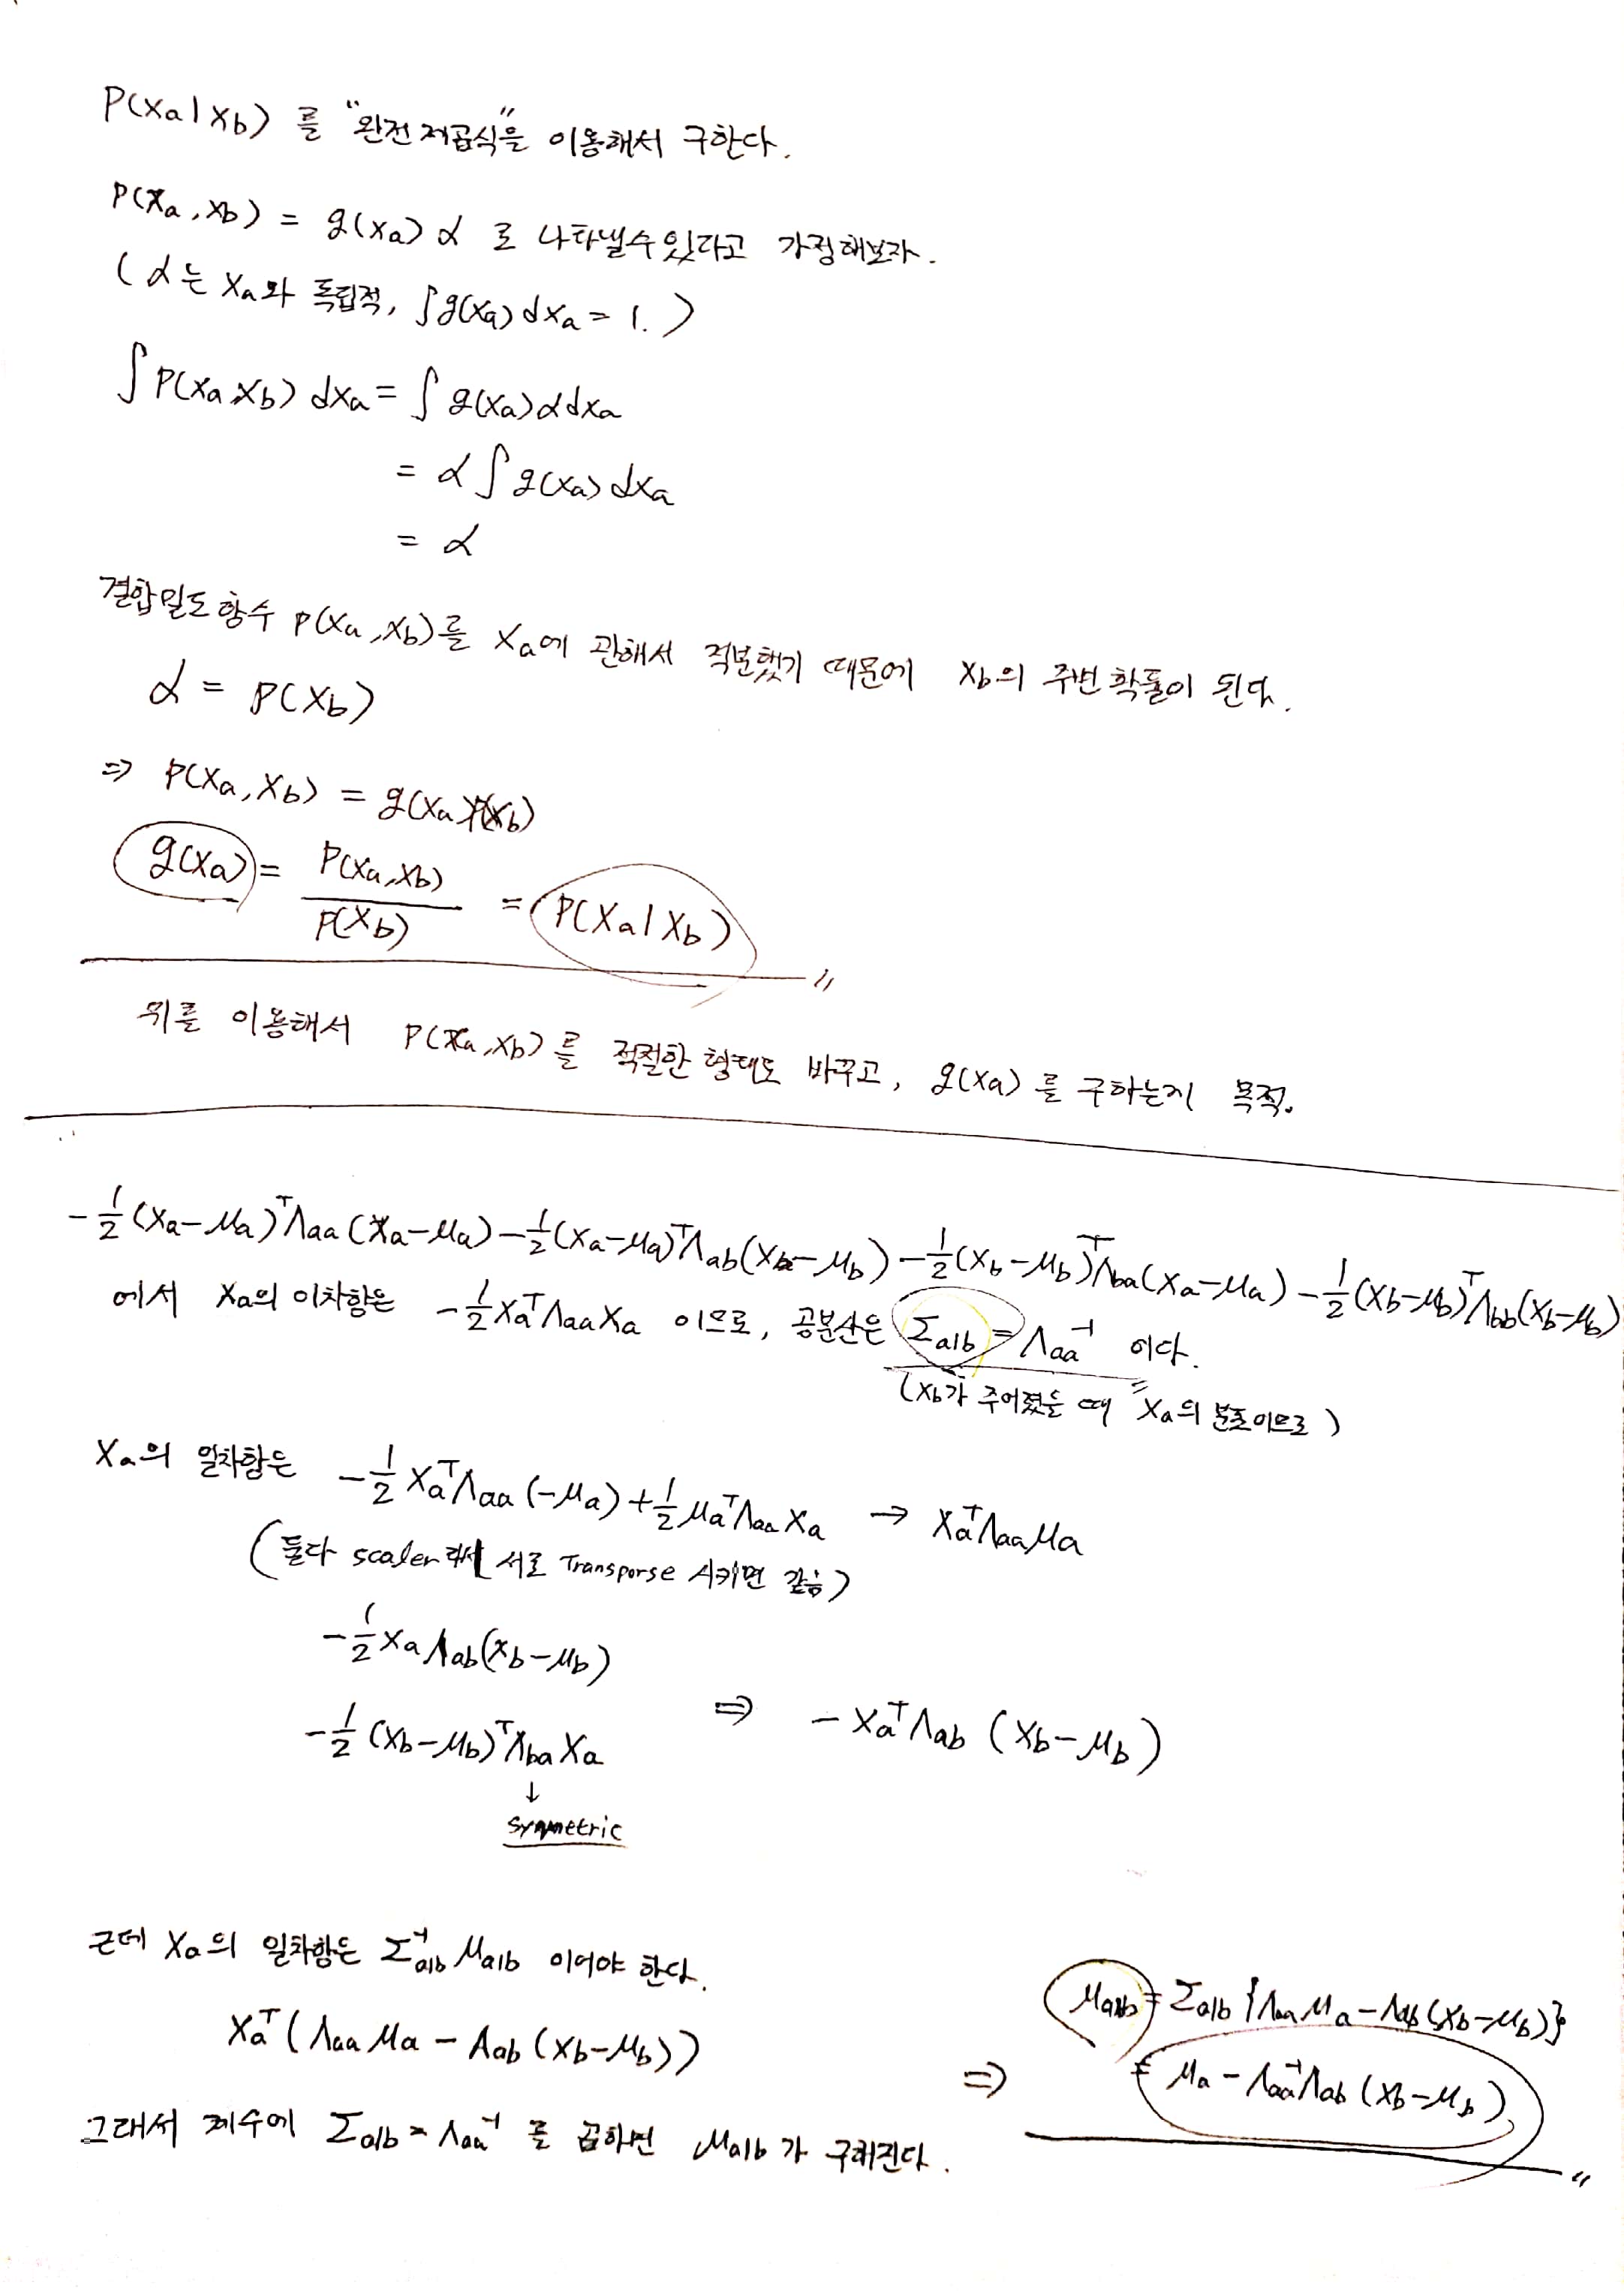 P(xa|xb) 를 "완전제곱식"을 이용해서 구한다.
P(xa, xb) = g(xa) α 로 나타낼수있다고 가정해보자.
(α는 xa와 독립적, ∫g(xa)dxa = 1.)
∫P(xa,xb) dxa = ∫ g(xa)αdxa
= α∫g(xa)dxa
= α
결합밀도함수 p(xa,xb)를 xa에 관해서 적분했기 때문에 xb의 주변확률이 된다.
α = p(xb)
⇒ P(xa, xb) = g(xa)P(xb)
g(xa) = P(xa,xb) / P(xb) = P(xa|xb)
위를 이용해서 P(xa,xb)를 적절한 형태로 바꾸고, g(xa)를 구하는게 목적.
-1/2(xa-μa)ᵀΛaa(xa-μa) -1/2(xa-μa)ᵀΛab(xb-μb) -1/2(xb-μb)ᵀΛba(xa-μa) -1/2(xb-μb)ᵀΛbb(xb-μb)
에서 xa의 이차항은 -1/2xaᵀΛaaxa 이므로, 공분산은 Σa|b = Λaa⁻¹ 이다.
(xb가 주어졌을 때 xa의 분포이므로)
xa의 일차항은 -1/2xaᵀΛaa(-μa)+1/2μaᵀΛaaxa → xaᵀΛaaμa
(둘다 scaler라서 서로 Transporse 시키면 같음)
-1/2xaΛab(xb-μb)
-1/2(xb-μb)ᵀΛbaxa ⇒ -xaᵀΛab(xb-μb)
↓
symmetric
근데 xa의 일차항은 Σa|b⁻¹μa|b 이어야 한다.
xaᵀ(Λaaμa - Λab(xb-μb))
그래서 계수에 Σa|b = Λaa⁻¹ 를 곱하면 μa|b가 구해진다.
⇒ μa|b = Σa|b{Λaaμa-Λab(xb-μb)}
= μa-Λaa⁻¹Λab(xb-μb)